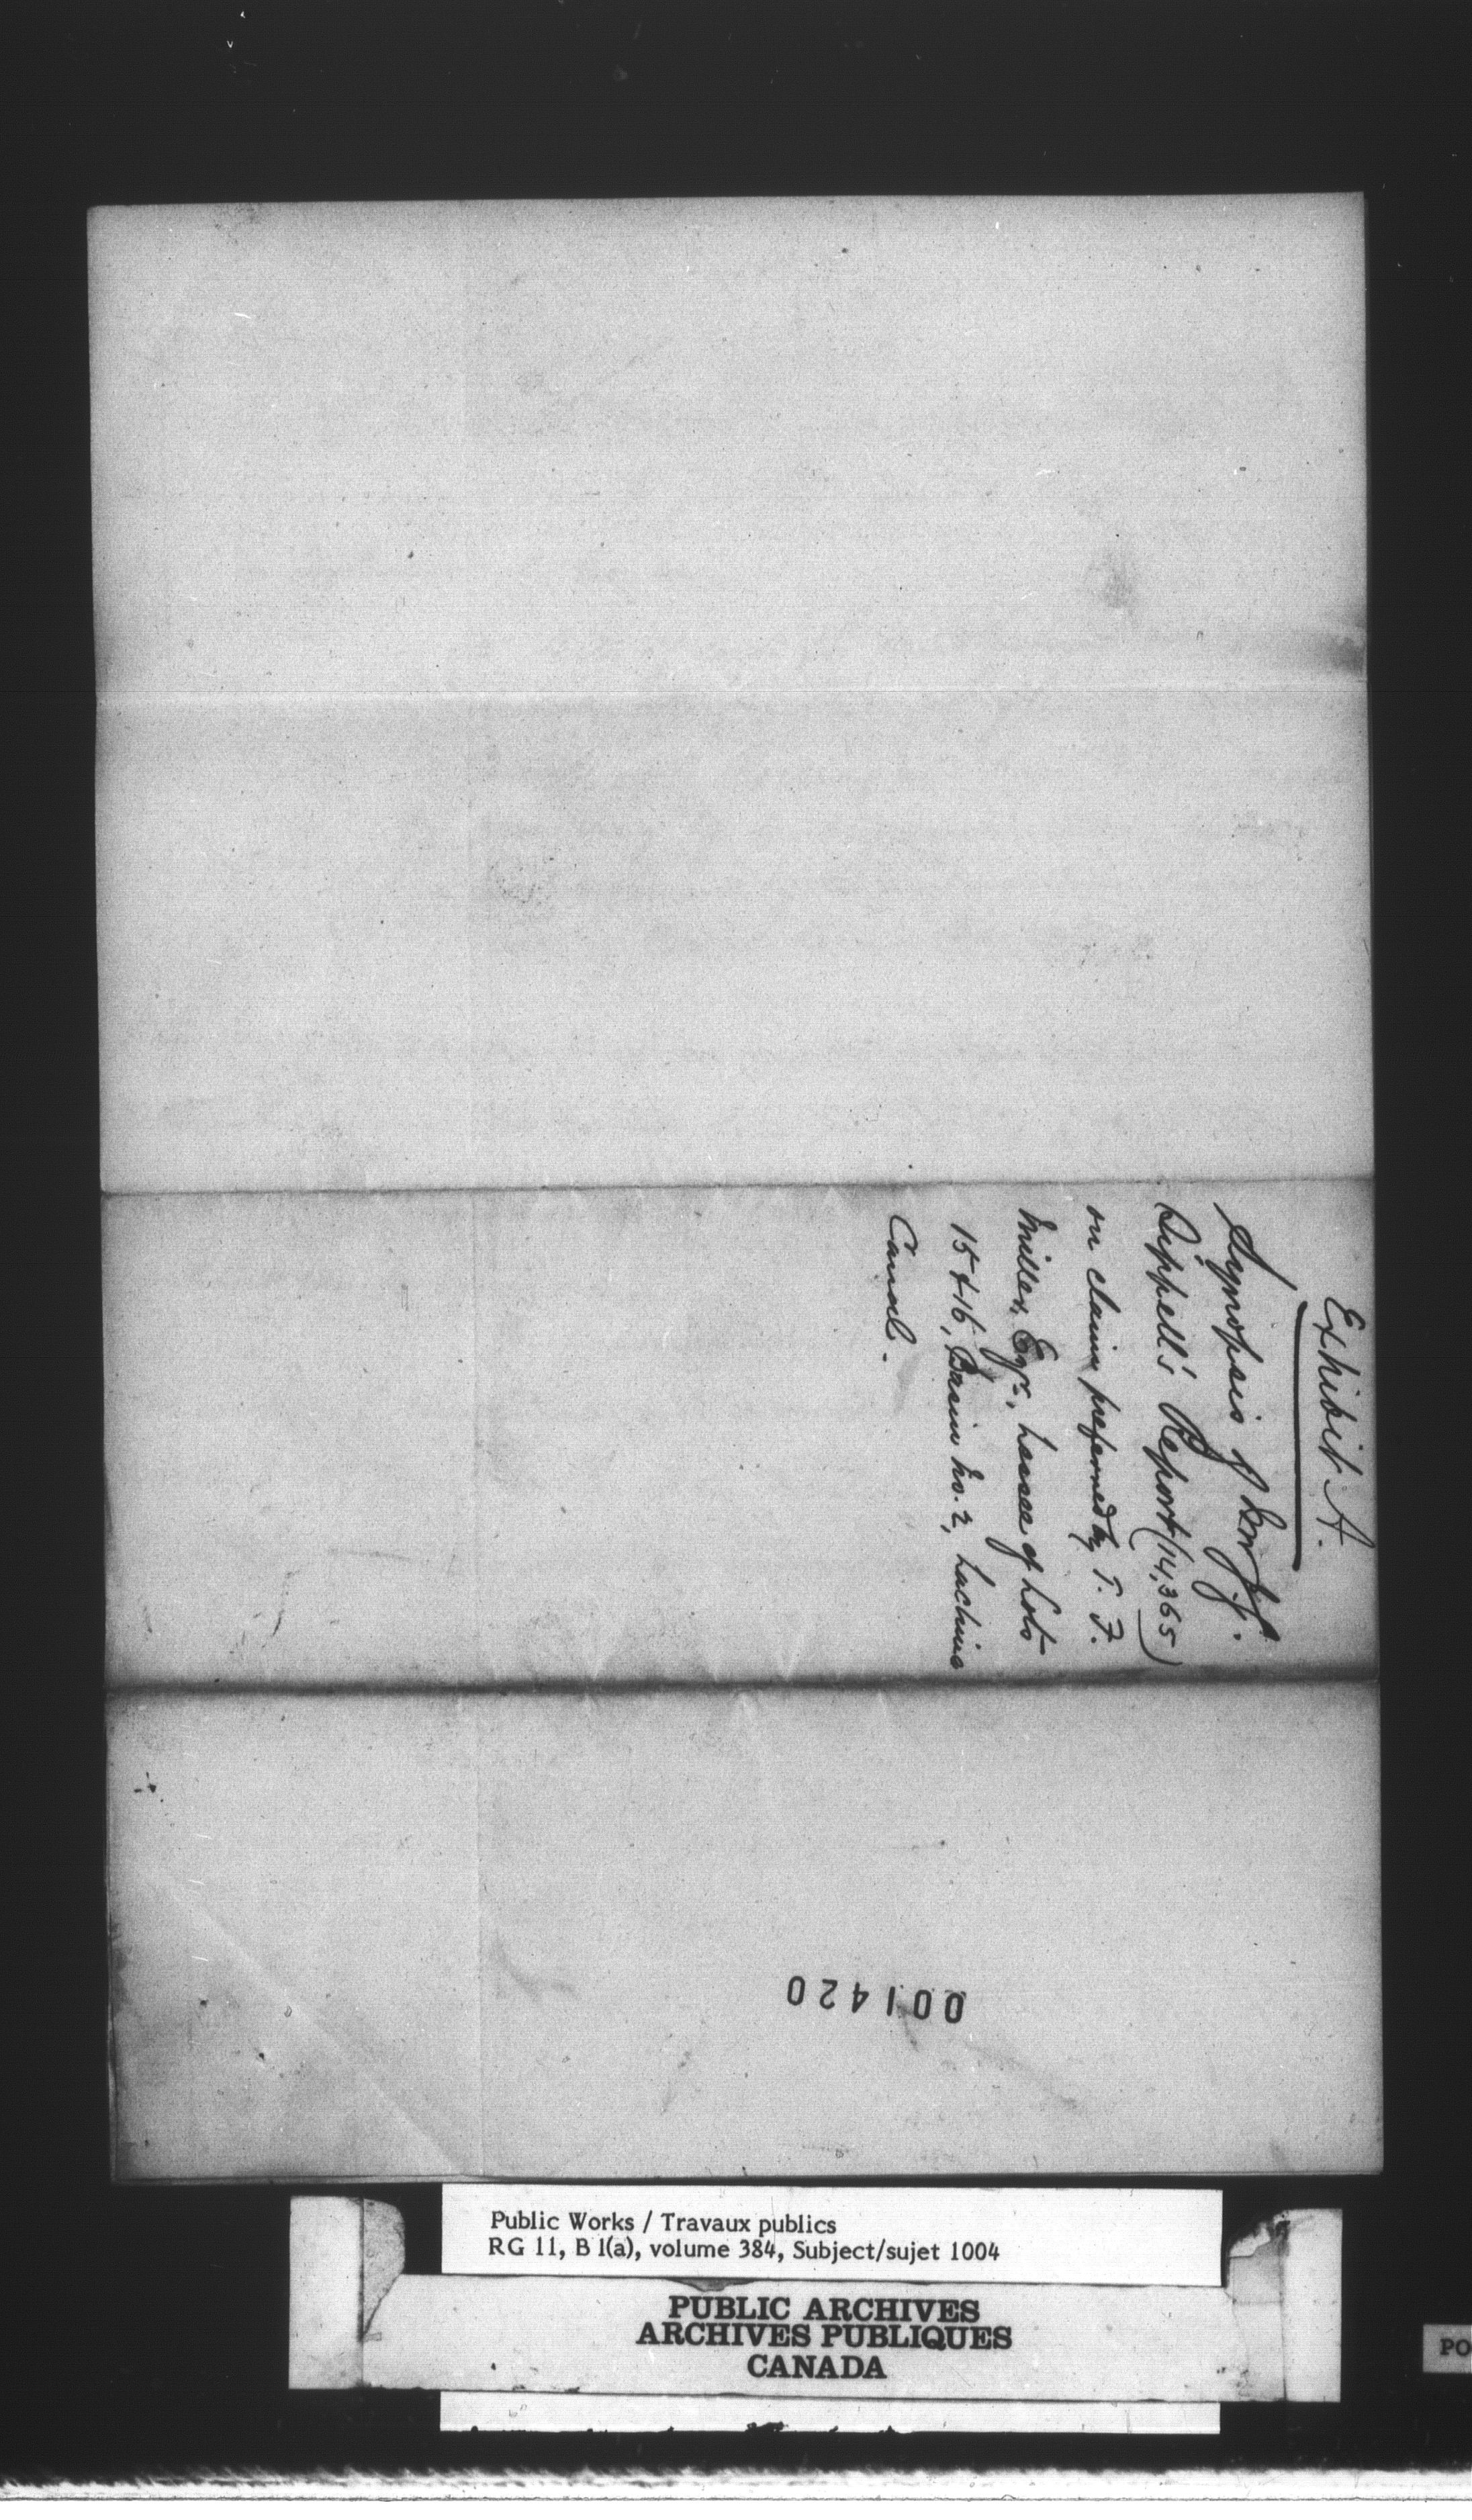 Exhibit A.
Synopsis of
Sippell's Report (14,365)
on claim preferred by T. F.
Miller, Esqr., Lessee of Lots
15 & 16, Basin No. 2, Lachine
Canal.
001420
Public Works / Travaux publics
RG 11, B 1(a), volume 384, Subject/sujet 1004
PUBLIC ARCHIVES
ARCHIVES PUBLIQUES
CANADA
PO